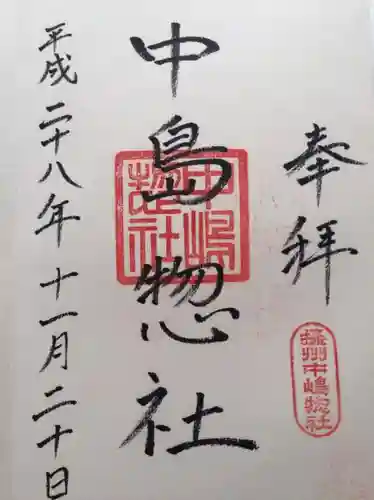 奉拝
播州中嶋惣社
中島惣社
中嶋惣社
平成二十八年十一月二十日